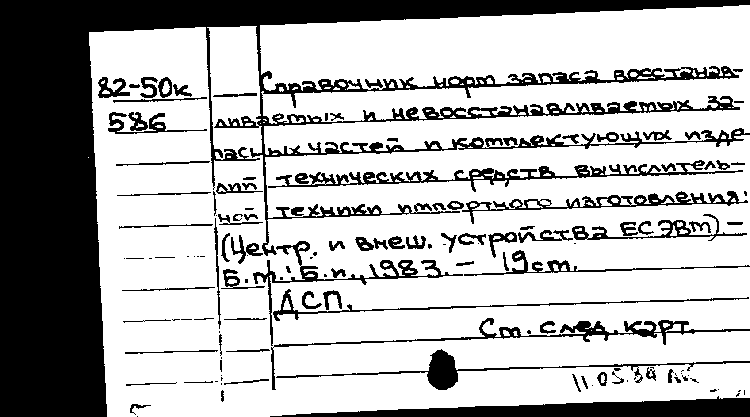 82-50к Справочник норм запаса восстанав-
586 ливаемых и невосстанавливаемых за-
пасных частей и комплектующих изде-
лий технических средств вычислитель-
ной техники импортного изготовления:
(Центр. и внеш. устройства ЕС ЭВМ) –
Б.м.: Б.и., 1983. – 19 ст.
ДСП.
Ст. след. карт.
11.05.84 ЛК